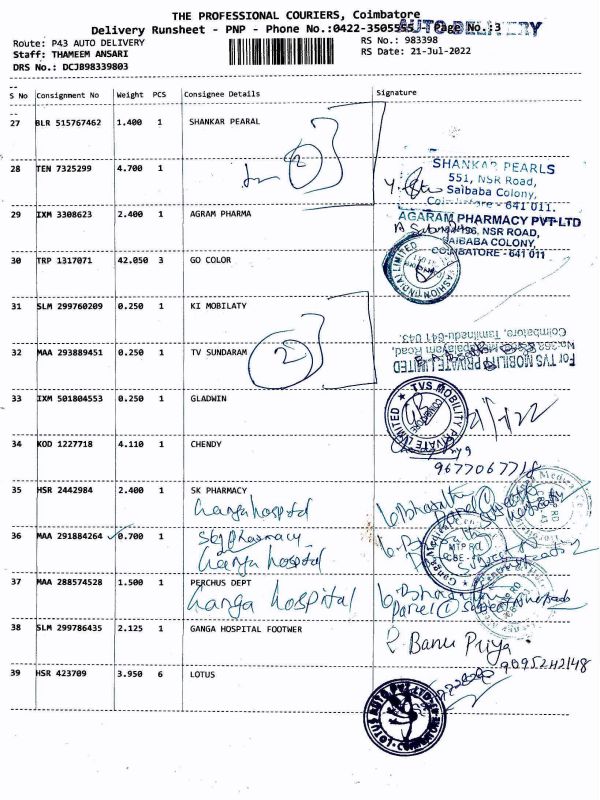 THE PROFESSIONAL COURIERS, Coimbatore
Delivery Runsheet - PNP - Phone No.:0422-3505555 Page No.:3
AUTO DELIVERY
Route: P43 AUTO DELIVERY
RS No.: 983398
Staff: THAMEEM ANSARI
RS Date: 21-Jul-2022
DRS No.: DCJB98339803
S No Consignment No Weight PCS Consignee Details Signature
27 BLR 515767462 1.400 1 SHANKAR PEARAL
28 TEN 7325299 4.700 1
2
SHANKAR PEARLS
551, NSR Road,
Saibaba Colony,
Coimbatore - 641 011.
29 IXM 3308623 2.400 1 AGRAM PHARMA
AGARAM PHARMACY PVT LTD
NSR ROAD,
SAIBABA COLONY,
COIMBATORE - 641 011
30 TRP 1317071 42.050 3 GO COLOR
FASHION (INDIA) LIMITED
31 SLM 299760209 0.250 1 KI MOBILATY
32 MAA 293889451 0.250 1 TV SUNDARAM
2
For TVS MOBILITY PRIVATE LIMITED
Coimbatore, Tamilnadu-641 043.
33 IXM 501804553 0.250 1 GLADWIN
TVS MOBILITY PRIVATE LIMITED
COIMBATORE
34 KOD 1227718 4.110 1 CHENDY
9677067718
35 HSR 2442984 2.400 1 SK PHARMACY
Ganga hospital
36 MAA 291884264 0.700 1 Pharmacy
Ganga hospital
37 MAA 288574528 1.500 1 PERCHUS DEPT
Ganga hospital
38 SLM 299786435 2.125 1 GANGA HOSPITAL FOOTWER
R. Banu Priya
9095242148
39 HSR 423709 3.950 6 LOTUS
LOTUS AUTO PVT LTD
COIMBATORE